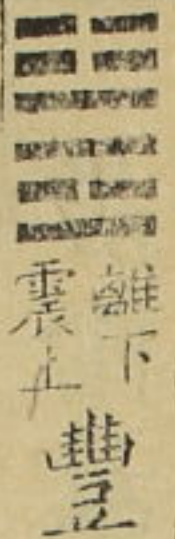 離下
震上
豐